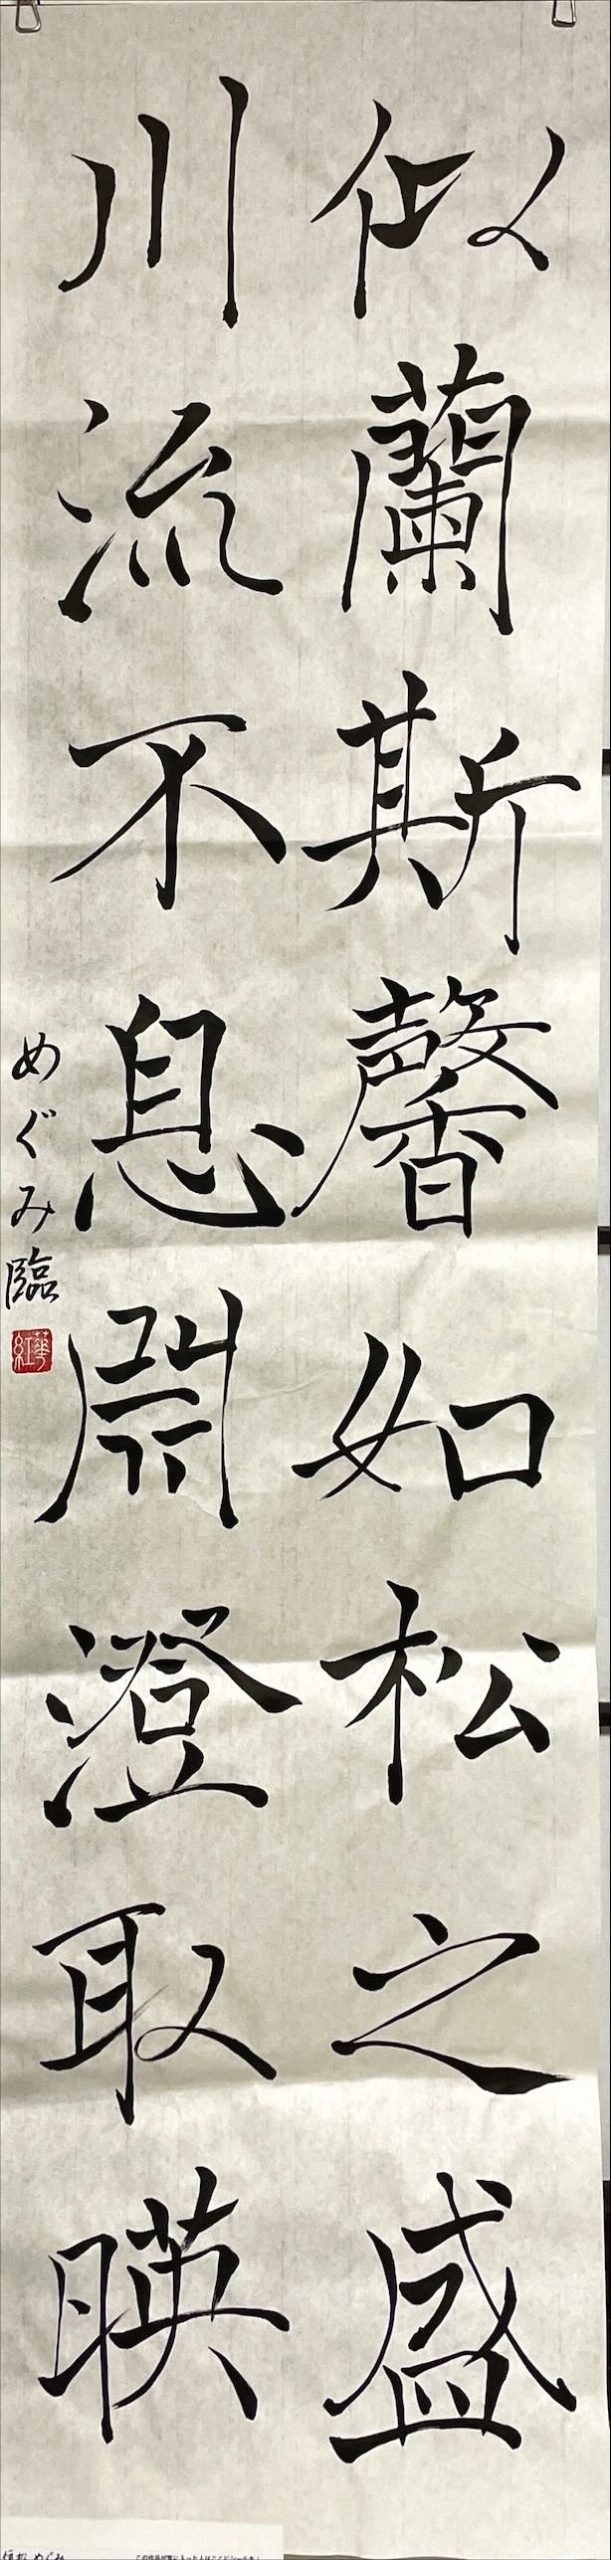 似蘭斯馨如松之盛
川流不息淵澄取暎
めぐみ臨
華紅